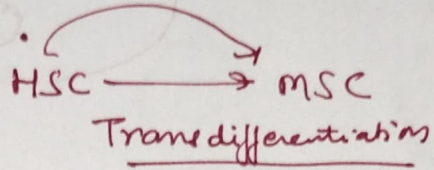 HSC → MSC
Transdifferentiation